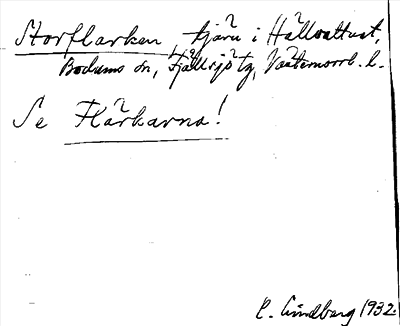 Storflarken tjärn i Hällvattnet,
Bodums sn, Fjällsjö tg, Västernorrl. l.
Se Flärkarna!
C. Lindberg 1932.